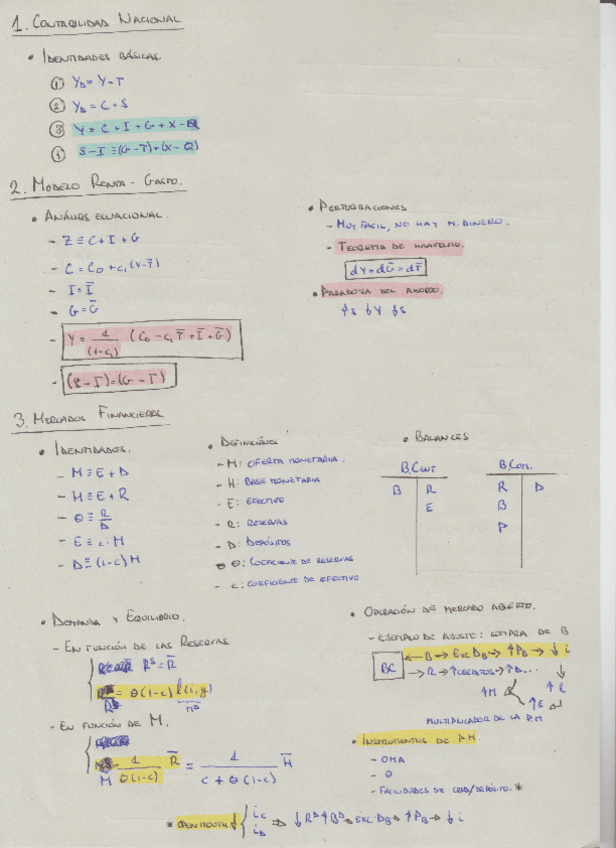 1. CONTABILIDAD NACIONAL
• IDENTIDADES BÁSICAS.
① Y_D = Y - T
② Y_D = C + S
③ Y = C + I + G + X - Q
④ S - I ≡ (G - T) + (X - Q)
2. MODELO RENTA - GASTO.
• ANÁLISIS ECUACIONAL.
- Z ≡ C + I + G
- C = C₀ + c₁(Y - T̄)
- I = Ī
- G = Ḡ
- Y = 1/(1-c₁) (C₀ - c₁T̄ + Ī + Ḡ)
- (S - I) = (G - T)
• PERTURBACIONES
- MUY FÁCIL, NO HAY M. DINERO.
- TEOREMA DE HAAVELMO.
dY = dḠ = dT̄
• PARADOJA DEL AHORRO.
↑S ↓Y ↓S
3. MERCADOS FINANCIEROS
• IDENTIDADES.
- M ≡ E + D
- H ≡ E + R
- Θ ≡ R/D
- E ≡ c · M
- D ≡ (1-c) M
• DEFINICIONES
- M: OFERTA MONETARIA.
- H: BASE MONETARIA
- E: EFECTIVO
- R: RESERVAS
- D: DEPÓSITOS
Θ: COEFICIENTE DE RESERVAS
- c: COEFICIENTE DE EFECTIVO
• BALANCES
B.Cent B.Com.
B R R D
E B
P
• DEMANDA Y EQUILIBRIO.
- EN FUNCIÓN DE LAS RESERVAS
Rˢ = R̄
= Θ(1-c) L(i,y)
- EN FUNCIÓN DE M.
M = 1/Θ(1-c) R̄ = 1/c + Θ(1-c) H̄
• OPERACIÓN DE MERCADO ABIERTO.
- EJEMPLO DE AJUSTE: COMPRA DE B
BC ← B → EXC D_B → ↑P_B → ↓i
→ R → ↑CREDITOS → ↑D...
↑M ↑R
↑E
MULTIPLICADOR DE LA P.M
• INSTRUMENTOS DE P.M
- OMA
- Θ
- FACILIDADES DE CRED/DEPÓSITO. *
* ↓ { i_C i_D ⇒ ↓Rᴰ ↑Bᴰ → EXC D_B → ↑P_B → ↓i